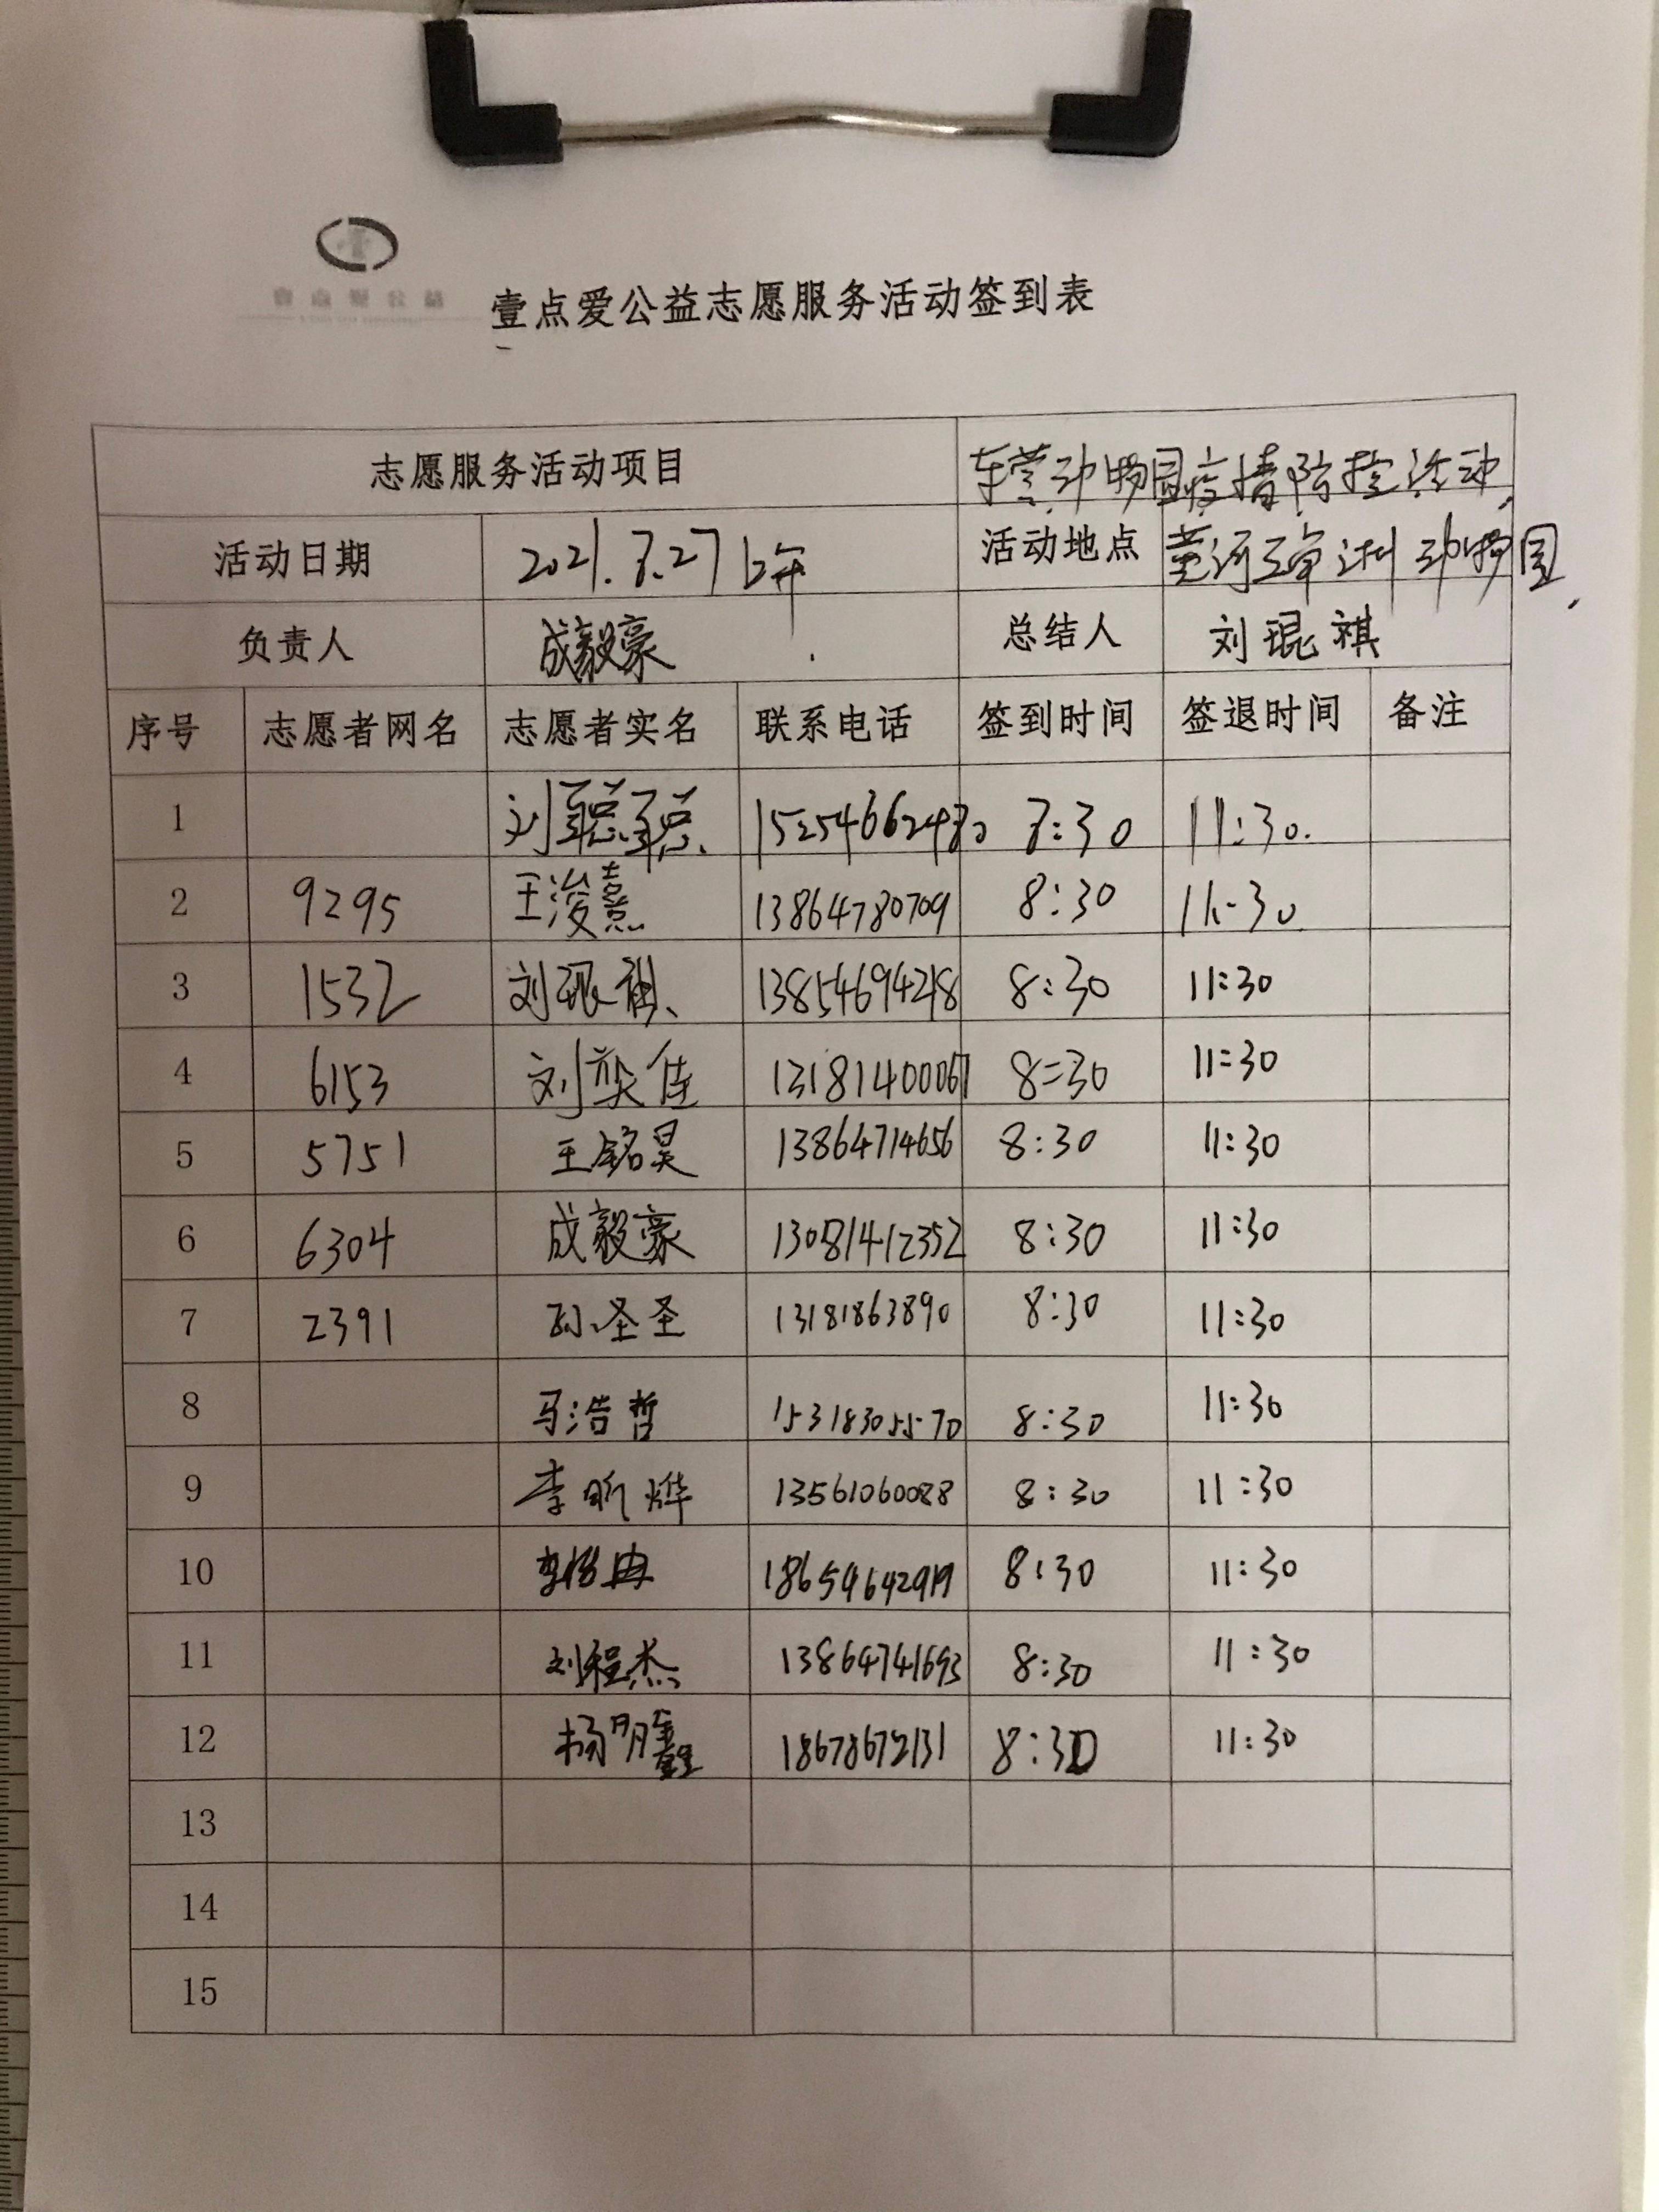 壹点爱公益
壹点爱公益志愿服务活动签到表
志愿服务活动项目 东营动物园疫情防控活动
活动日期 2021.7.27 上午 活动地点 黄河三角洲动物园
负责人 成毅豪 总结人 刘琨祺
序号 志愿者网名 志愿者实名 联系电话 签到时间 签退时间 备注
1 刘聪聪 8:30 11:30.
2 9295 王浚熹 13864780709 8:30 11:30
3 1532 刘琨祺 13854694218 8:30 11:30
4 6153 刘奕佳 13181400067 8:30 11:30
5 5751 王铭昊 13864714656 8:30 11:30
6 6304 成毅豪 13081412352 8:30 11:30
7 2391 孙圣圣 13181863890 8:30 11:30
8 马浩哲 15318305570 8:30 11:30
9 李昕烨 13561060088 8:30 11:30
10 8:30 11:30
11 刘程杰 13864741693 8:30 11:30
12 18678672131 8:30 11:30
13
14
15